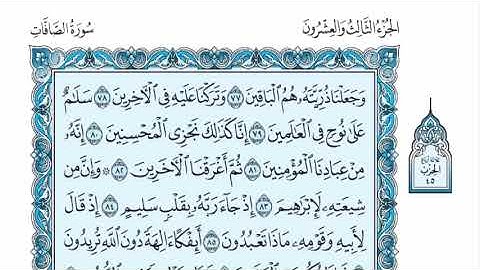 سُورَةُ الصَّافَّاتِ
الجُزْءُ الثَّالِثُ وَالعِشْرُونَ
وَجَعَلْنَا ذُرِّيَّتَهُۥ هُمُ ٱلْبَاقِينَ ٧٧ وَتَرَكْنَا عَلَيْهِ فِى ٱلْءَاخِرِينَ ٧٨ سَلَٰمٌ
عَلَىٰ نُوحٍ فِى ٱلْعَٰلَمِينَ ٧٩ إِنَّا كَذَٰلِكَ نَجْزِى ٱلْمُحْسِنِينَ ٨٠ إِنَّهُۥ
مِنْ عِبَادِنَا ٱلْمُؤْمِنِينَ ٨١ ثُمَّ أَغْرَقْنَا ٱلْءَاخَرِينَ ٨٢ ۞ وَإِنَّ مِن
شِيعَتِهِۦ لَإِبْرَٰهِيمَ ٨٣ إِذْ جَآءَ رَبَّهُۥ بِقَلْبٍ سَلِيمٍ ٨٤ إِذْ قَالَ
لِأَبِيهِ وَقَوْمِهِۦ مَاذَا تَعْبُدُونَ ٨٥ أَئِفْكًا ءَالِهَةً دُونَ ٱللَّهِ تُرِيدُونَ
الحزب
٤٥